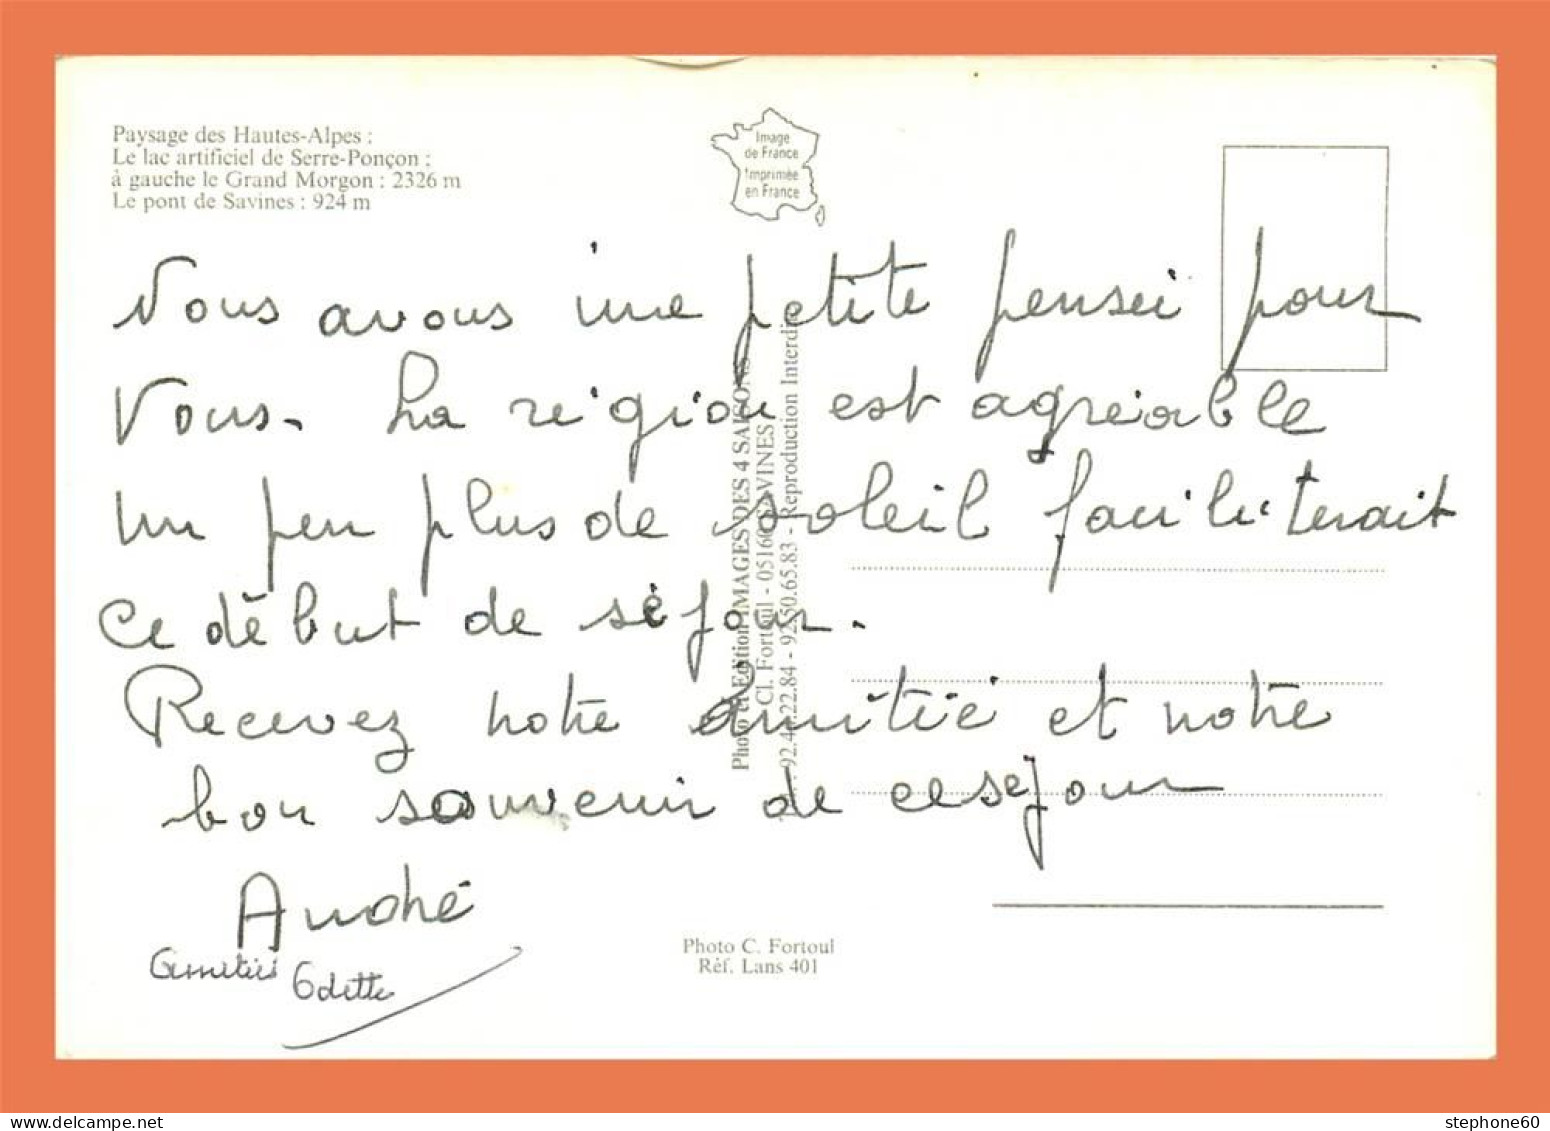 Paysage des Hautes-Alpes :
Le lac artificiel de Serre-Ponçon :
à gauche le Grand Morgon : 2326 m
Le pont de Savines : 924 m
Image
de France
Imprimée
en France
Nous avons une petite pensée pour
Vous. La région est agréable
un peu plus de soleil faciliterait
ce début de séjour.
Recevez notre amitié et notre
bon souvenir de ce séjour
André
Amitiés Odette
Photo et Edition IMAGES DES 4 SAISONS
Cl. Fortoul - 05160 SAVINES
92.44.22.84 - 92.50.65.83 - Reproduction Interdite
Photo C. Fortoul
Réf. Lans 401
stephone60